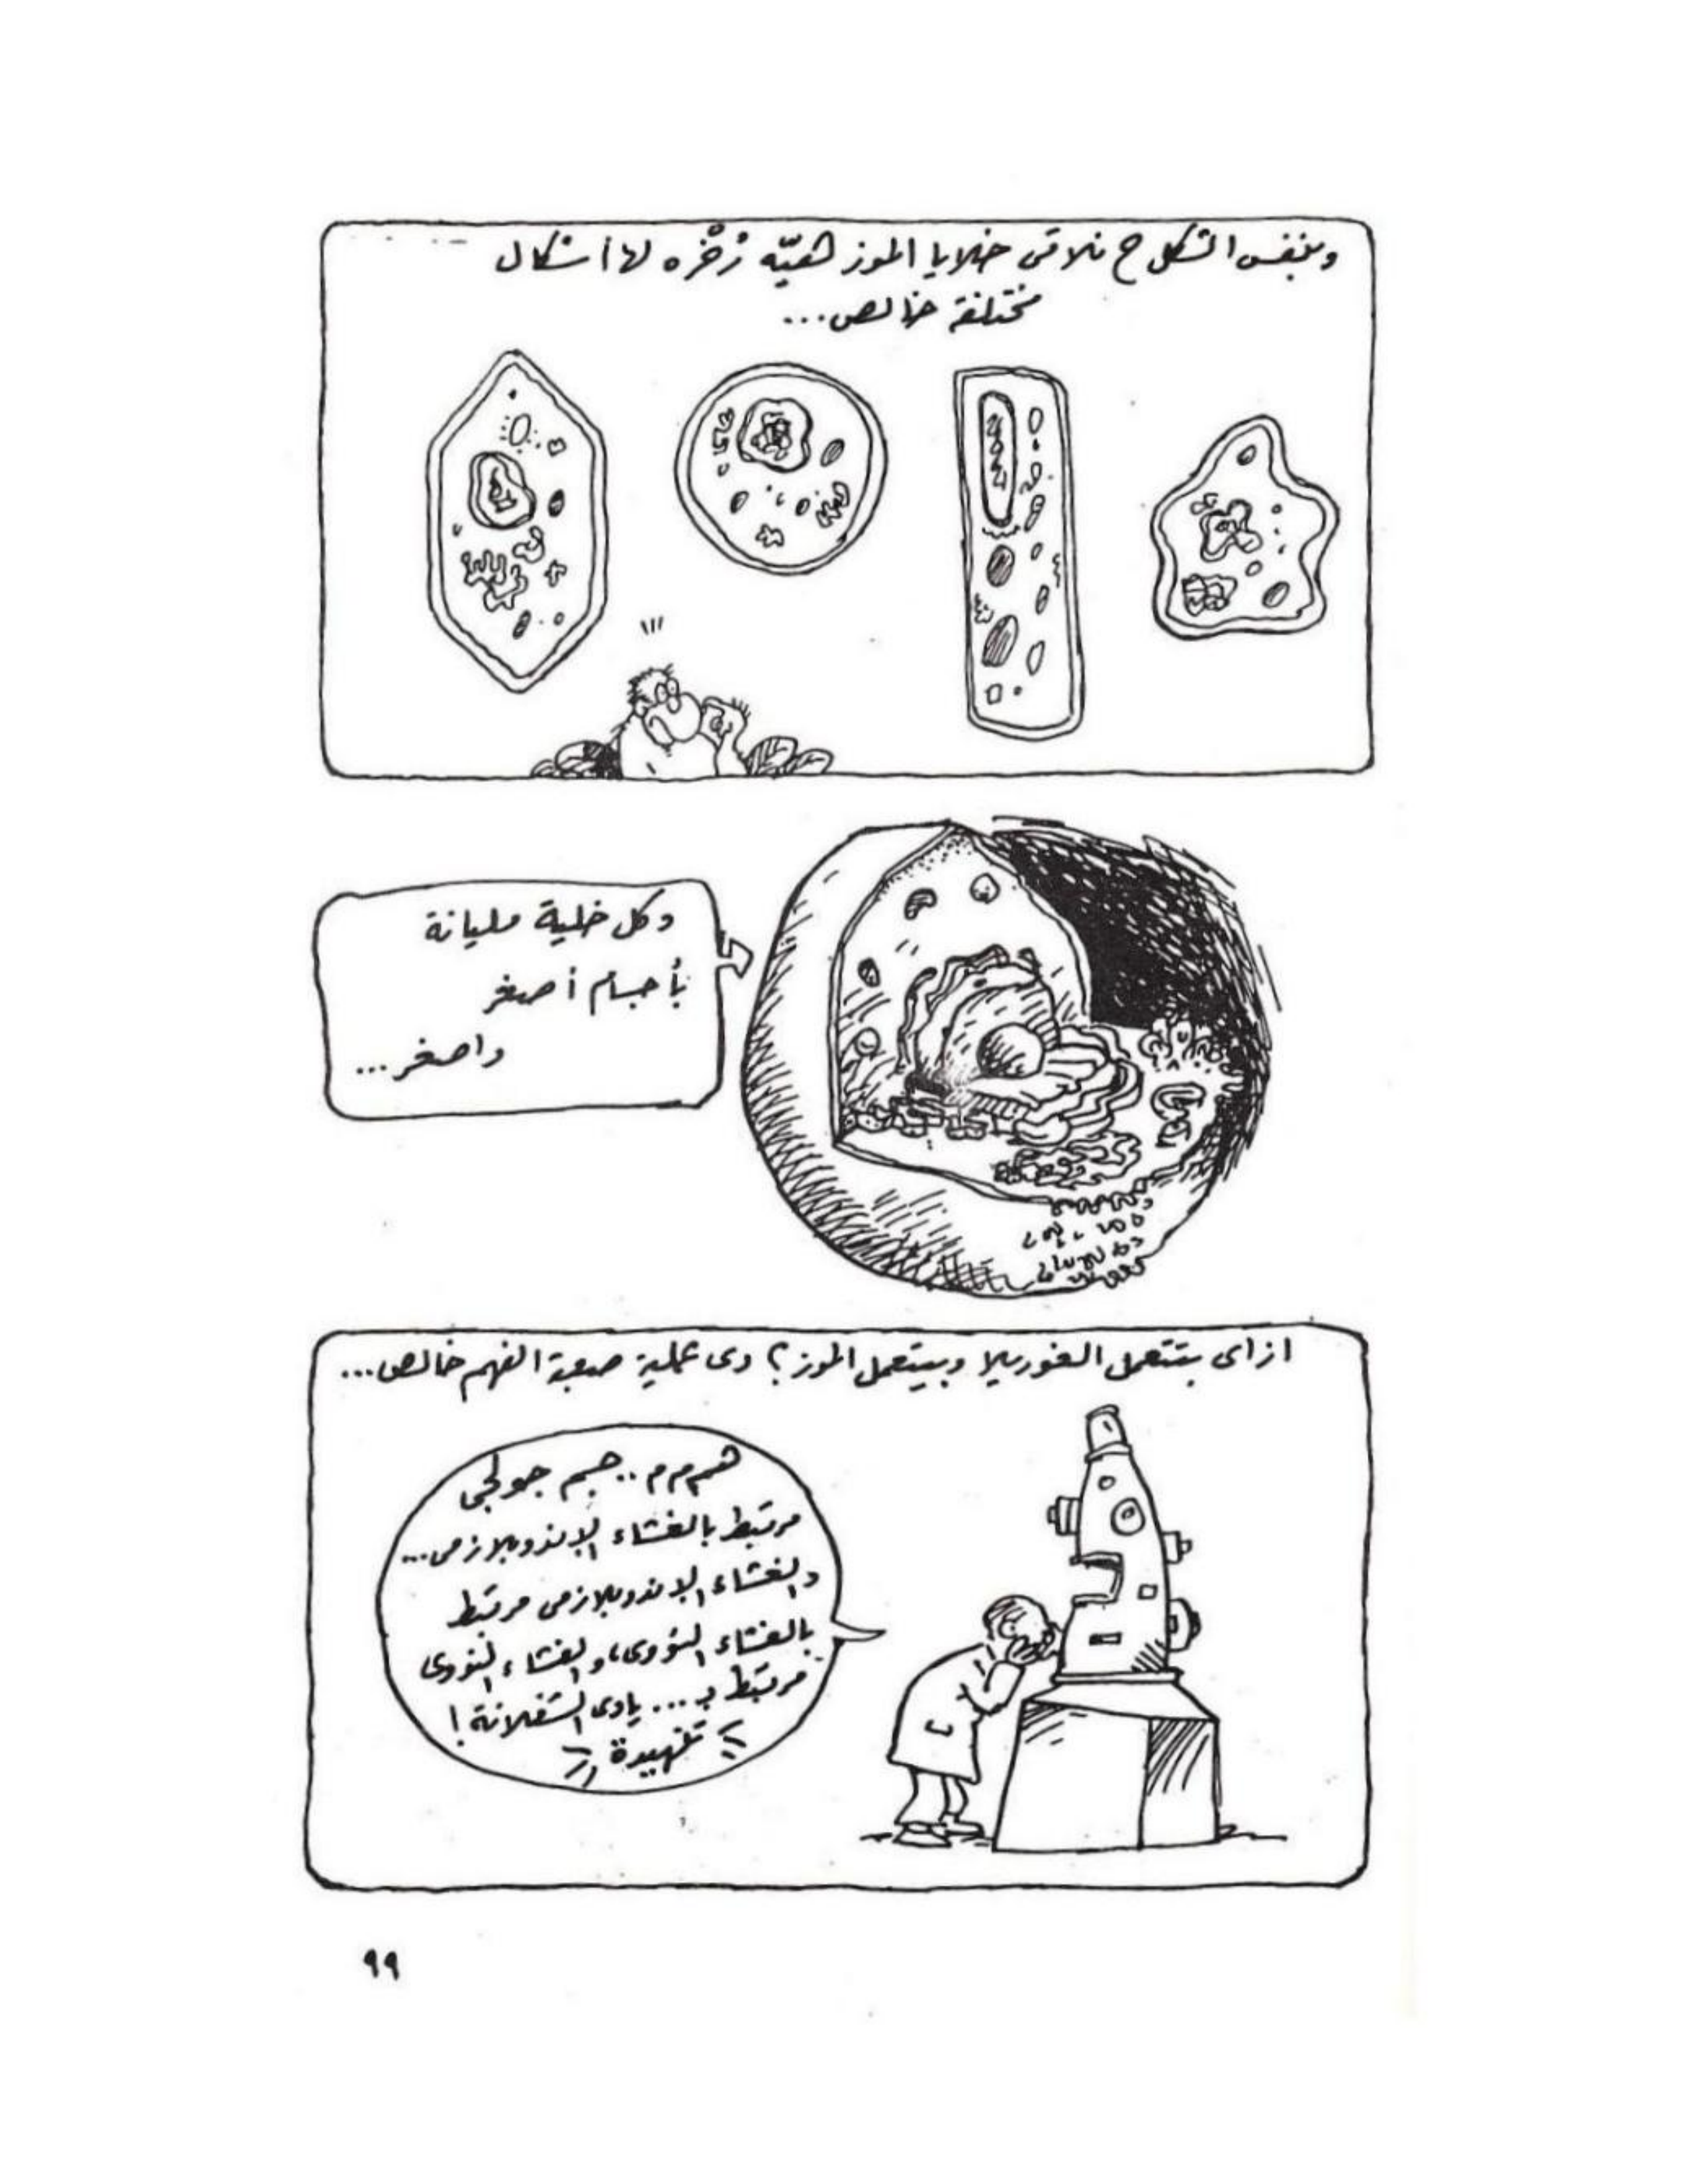 وبنفس الشكل ح نلاقى خلايا الموز هيّه رُخْره لها أشكال
مختلفة خالص...
وكل خلية مليانة
بأجسام أصغر
واصغر...
ازاى بتتعمل الغوريلا وبيتعمل الموز؟ دى عملية صعبة الفهم خالص...
همممم.. جسم جولجى
مرتبط بالغشاء الإندوبلازمى...
والغشاء الإندوبلازمى مرتبط
بالغشاء النووى، والغشاء النووى
مرتبط بـ... يادى الشغلانة!
تنهيدة
٩٩